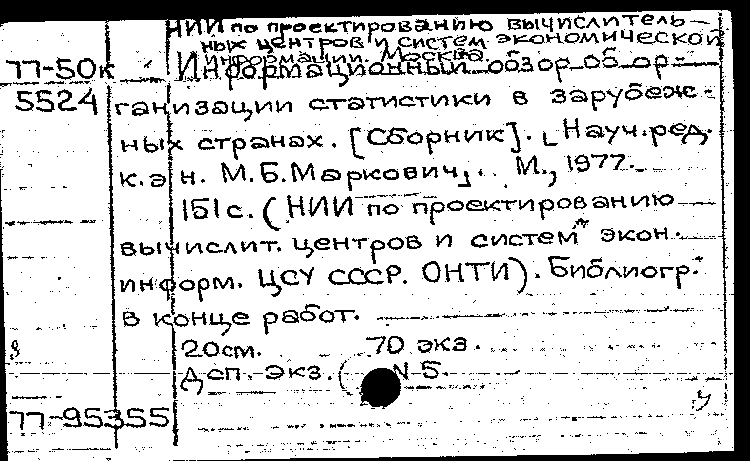 НИИ по проектированию вычислитель-
ных центров и систем экономической
информации. Москва
77-50к Информационный обзор об ор-
5524 ганизации статистики в зарубеж-
ных странах. [Сборник]. Науч. ред.
к.э н. М.Б.Маркович,.. М., 1977.
151с. (НИИ по проектированию
вычислит. центров и систем экон.
информ. ЦСУ СССР. ОНТИ). Библиогр.
в конце работ.
20см. 70 экз.
Дсп. экз. N 5.
77-95355